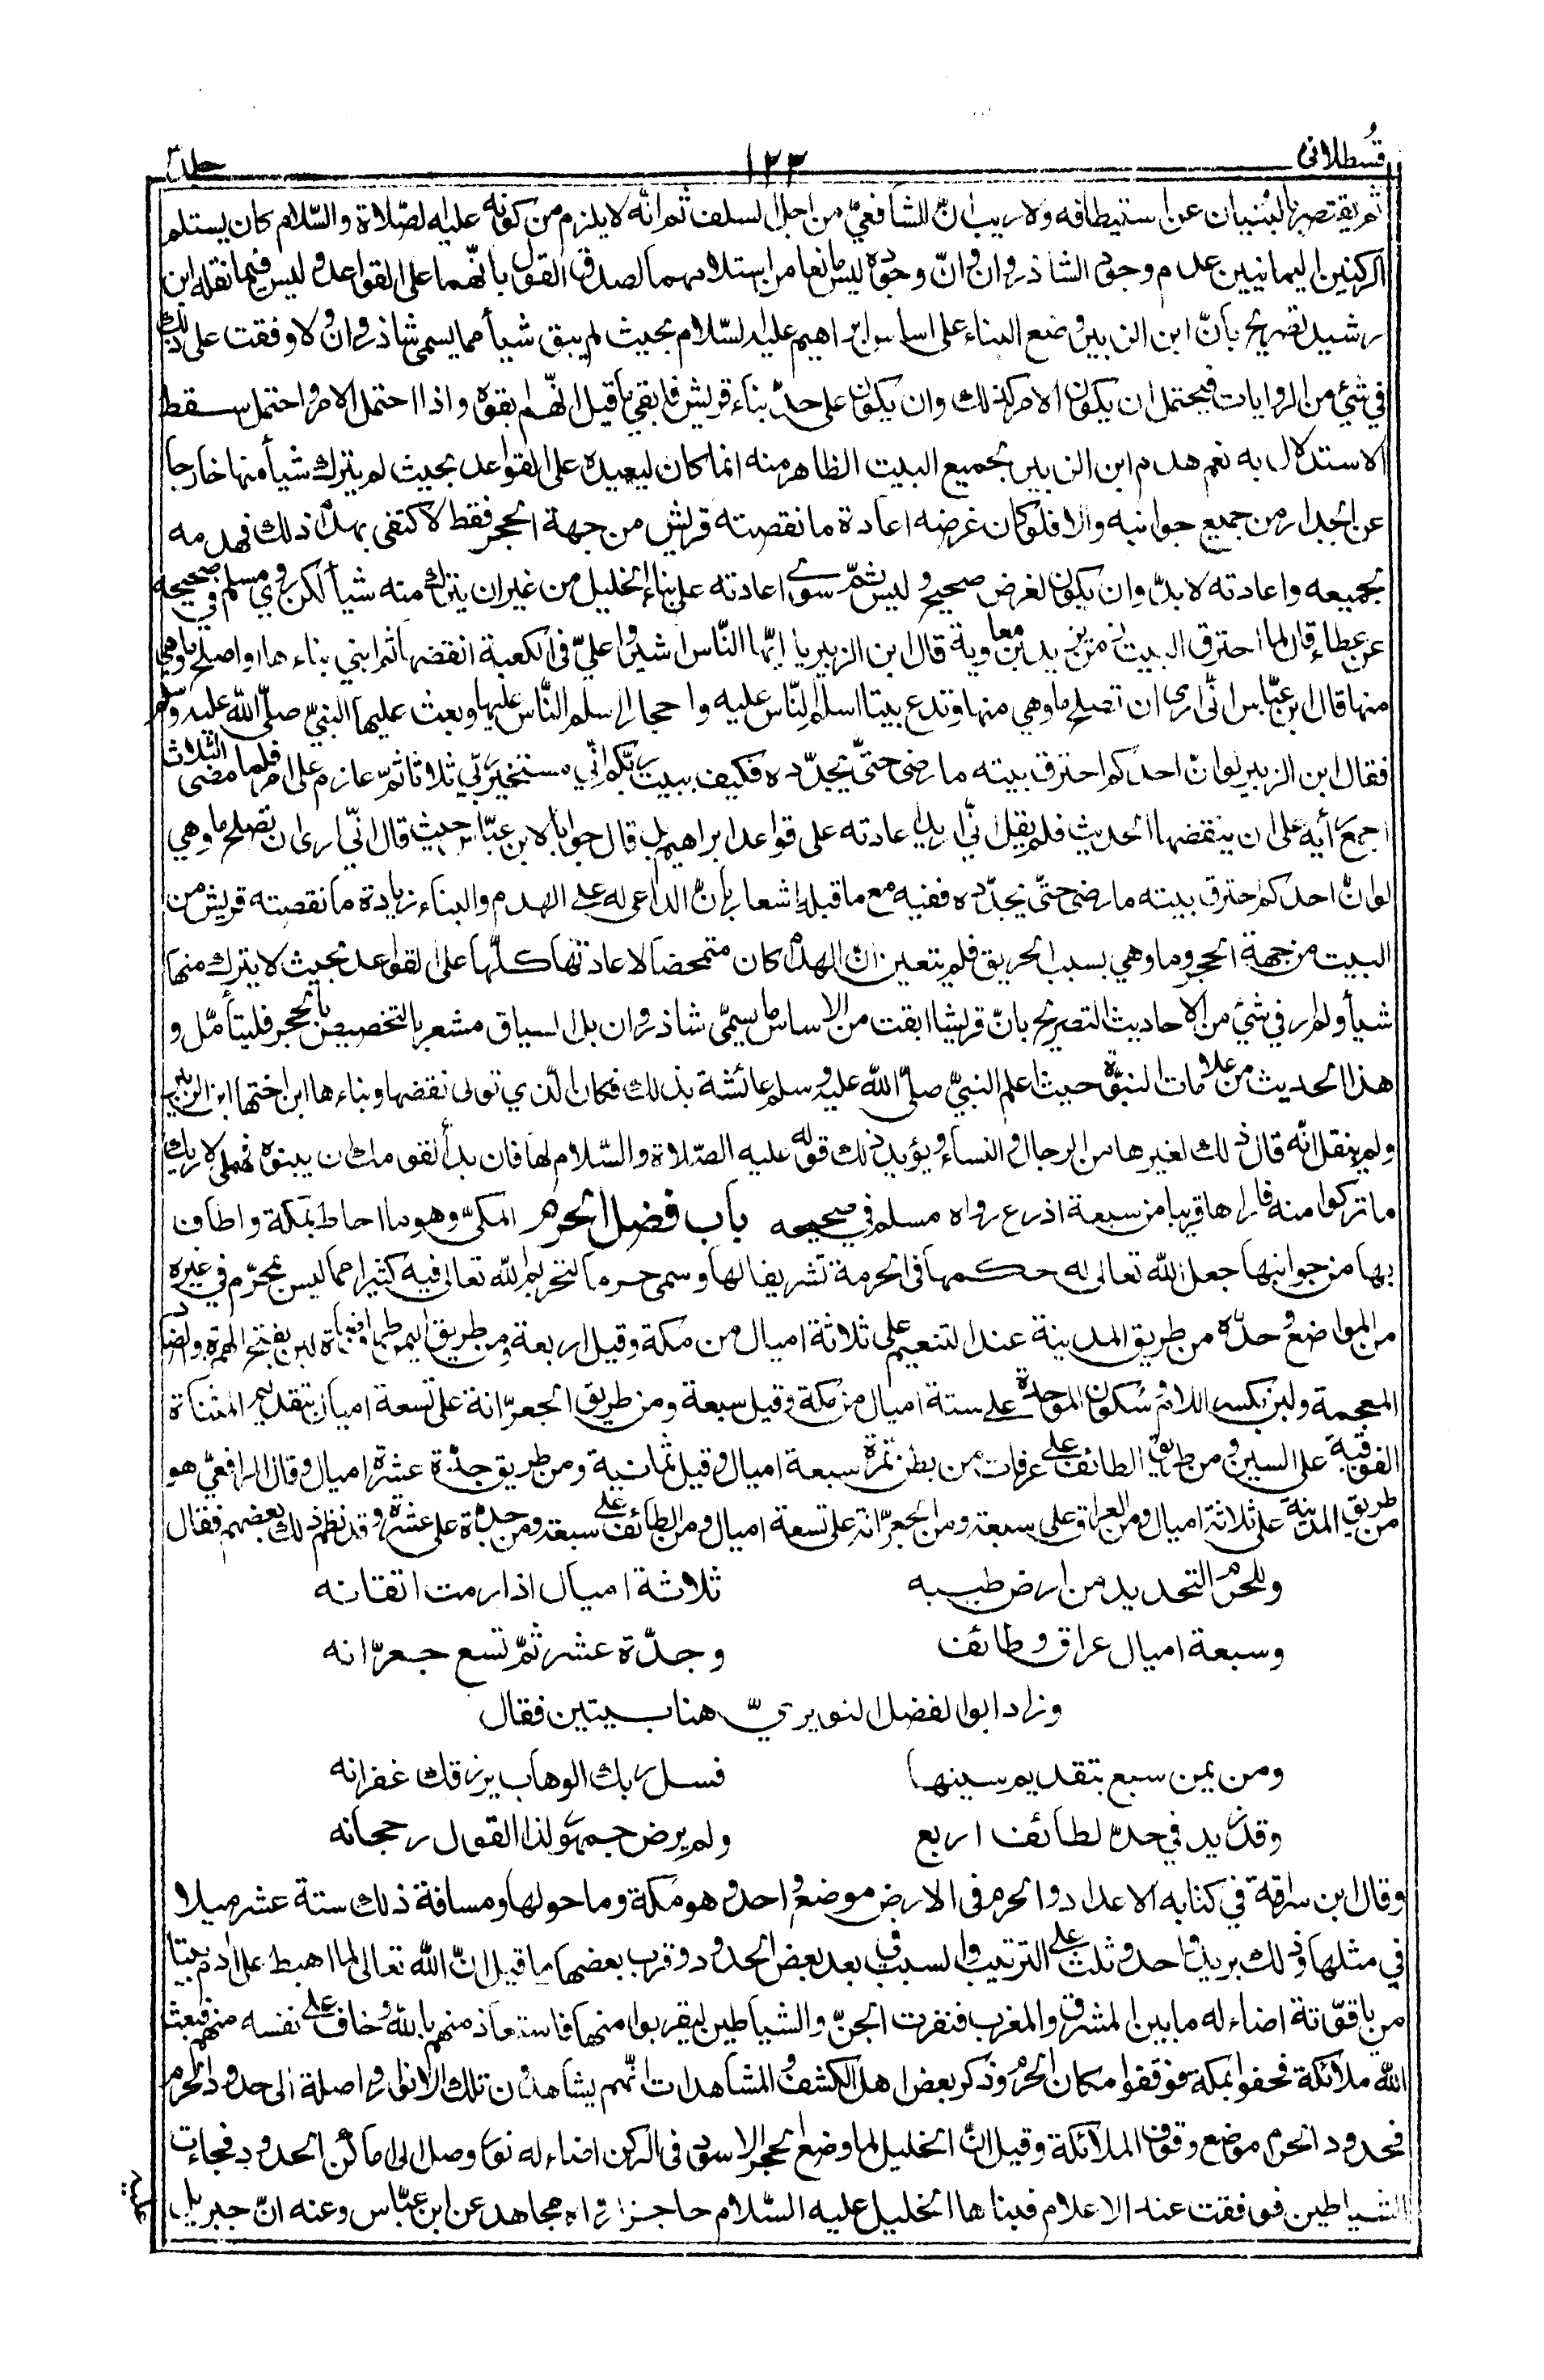 قسطلانى ١٢٣ جلد٣
ثم يقتصر بالبنيان عن استيطافه ولا ريب ان للشافعىّ من اجل السلف ثم انّه لا يلزم من كونه عليه الصّلاة والسّلام كان يستلم
الركنين اليمانيين عدم وجود الشاذروان وانّ وجوده ليس مانعا من استلامهما لصدق القول بانّهما على القواعد وليس فيما نقله ابن
رشيد تصريح بانّ ابن الزبير وضع البناء على اساس ابراهيم عليه السّلام بحيث لم يبق شيأ مما يسمى شاذروان ولا وقفت على ذلك
في شئ من الروايات فيحتمل ان يكون الامر كذلك وان يكون على حدّ بناء قريش فابقى ما قيل انّهم ابقوه واذا احتمل الامر واحتمل سقط
الاستدلال به نعم هدم ابن الزبير لجميع البيت الظاهر منه انما كان ليعيده على القواعد بحيث لم يترك شيأ منها خارجا
عن الجدار من جميع جوانبه والا فلو كان غرضه اعادة ما نقصته قريش من جهة الحجر فقط لاكتفى بهدم ذلك فهدمه
لجميعه واعادته لا بدّ وان يكون لغرض صحيح وليس ثمّ سوى اعادته على بناء الخليل من غير ان يترك منه شيأ لكن روى مسلم في صحيحه
عن عطاء قال لما احترق البيت زمن يزيد بن معاوية قال ابن الزبير يا ايّها النّاس اشيروا عليّ فى الكعبة انقضها ثم ابنى بناءها او اصلح ما وهى
منها قال ابن عبّاس انّى ارى ان تصلح ما وهي منها وتدع بيتا اسلم النّاس عليه واحجارا اسلم النّاس عليها وبعث عليها النبيّ صلّى اللّه عليه وسلّم
فقال ابن الزبير لو انّ احدكم احترق بيته ما رضى حتّى يجدّده فكيف ببيت ربّكم انّي مستخير ربّي ثلاثا ثمّ عازم على امرى فلما مضى الثلاث
اجمع رأيه على ان ينقضها الحديث فلم يقل انّى اريد اعادته على قواعد ابراهيم بل قال جوابا لابن عبّاس حيث قال انّي ارى ان تصلح ما وهي
لو انّ احدكم احترق بيته ما رضى حتّى يجدّده ففيه مع ما قبله اشعار بانّ الداعى له على الهدم والبناء زيادة ما نقصته قريش من
البيت من جهة الحجر وما وهي بسبب الحريق فلم يتعين انّ الهدم كان متمحضا لاعادتها كلّها على القواعد بحيث لا يترك منها
شيأ ولم ار في شئ من الاحاديث التصريح بانّ قريشا ابقت من الاساس ما يسمّى شاذروان بل السياق مشعر بالتخصيص بالحجر فليتأمّل و
هذا الحديث من علامات النبوّة حيث اعلم النبيّ صلّى اللّه عليه وسلم عائشة بذلك فكان الّذي تولى نقضها وبناءها ابن اختها ابن الزبير
ولم ينقل انّه قال ذلك لغيرها من الرجال والنساء ويؤيد ذلك قوله عليه الصّلاة والسّلام لها فان بدا لقومك ان يبنوه فهلمى لاريك
ما تركوا منه فاراها قريبا من سبعة اذرع رواه مسلم في صحيحه باب فضل الحرم المكىّ وهو ما احاط بمكة واطاف
بها من جوانبها جعل اللّه تعالى له حكمها فى الحرمة تشريفا لها وسمى حرما لتحريم اللّه تعالى فيه كثيرا مما ليس بمحرّم في غيره
من المواضع وحدّه من طريق المدينة عند التنعيم على ثلاثة اميال من مكة وقيل اربعة ومن طريق اليمن طرف اضاة لبن بفتح الهمزة والضاد
المعجمة ولبن بكسر اللام وسكون الموحدة على ستة اميال من مكة وقيل سبعة ومن طريق الجعرّانة على تسعة اميال بتقديم المثناة
الفوقية على السين ومن طريق الطائف على عرفات من بطن نمرة سبعة اميال وقيل ثمانية ومن طريق جدّة عشرة اميال وقال الرافعىّ هو
من طريق المدينة على ثلاثة اميال ومن العراق على سبعة ومن الجعرّانة على تسعة اميال ومن الطائف على سبعة ومن جدّة على عشرة وقد نظم ذلك بعضهم فقال
وللحرم التحديد من ارض طيبه ثلاثة اميال اذا رمت اتقانه
وسبعة اميال عراق وطائف وجدّة عشر ثمّ تسع جعرّانه
وزاد ابو الفضل النويرىّ هنا بيتين فقال
ومن يمن سبع بتقديم سينها فسل ربك الوهاب يرزقك غفرانه
وقد زيد في حدّ لطائف اربع ولم يرض جمهور لذا القول رجحانه
وقال ابن سراقة في كتابه الاعداد والحرم فى الارض موضع واحد وهو مكة وما حولها ومسافة ذلك ستة عشر ميلا
في مثلها وذلك بريد واحد وثلث على الترتيب والسبب في بعد بعض الحدود وقرب بعضها ما قيل انّ اللّه تعالى لما اهبط على آدم بيتا
من ياقوتة اضاء له ما بين المشرق والمغرب فنفرت الجنّ والشياطين ليقربوا منها فاستعاذ منهم باللّه وخاف على نفسه منهم فبعث
اللّه ملائكة فحفوا بمكة فوقفوا مكان الحرم وذكر بعض اهل الكشف والمشاهدات انّهم يشاهدون تلك الانوار واصلة الى حدود الحرم
فحدود الحرم موضع وقوف الملائكة وقيل انّ الخليل لما وضع الحجر الاسود فى الركن اضاء له نور وصل الى اماكن الحدود فجاءت
الشياطين فوقفت عند الاعلام فبناها الخليل عليه السّلام حاجزا رواه مجاهد عن ابن عبّاس وعنه انّ جبريل
عليه